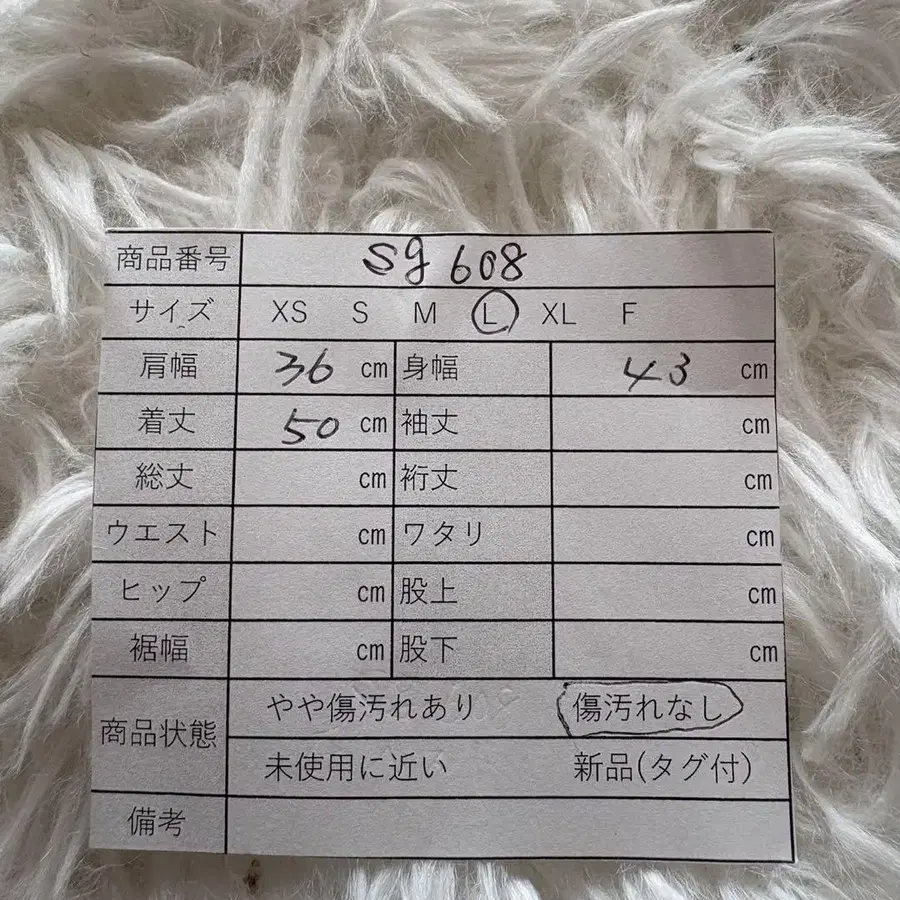 商品番号 sg 608
サイズ XS S M L XL F
肩幅 36 cm 身幅 43 cm
着丈 50 cm 袖丈 cm
総丈 cm 裄丈 cm
ウエスト cm ワタリ cm
ヒップ cm 股上 cm
裾幅 cm 股下 cm
商品状態 やや傷汚れあり 傷汚れなし
未使用に近い 新品(タグ付)
備考